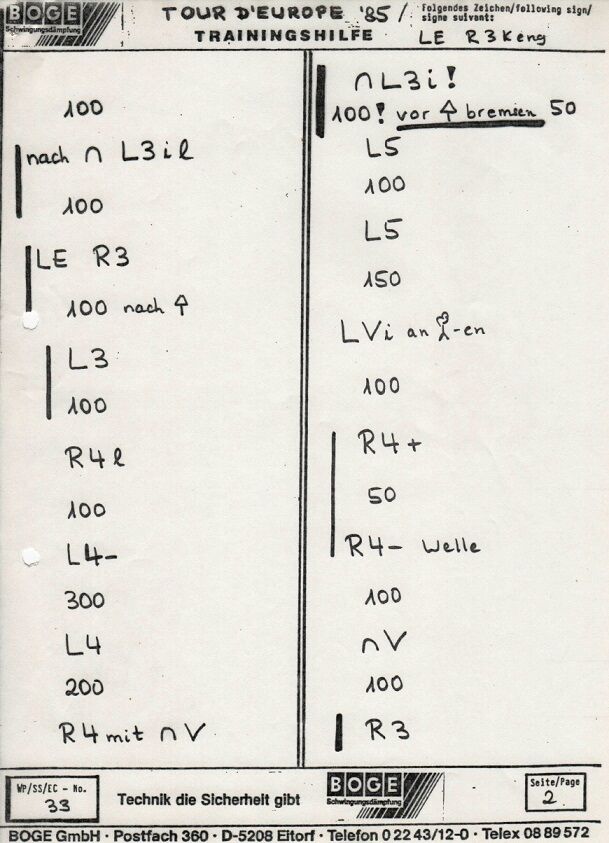 BOGE
Schwingungsdämpfung
TOUR D'EUROPE '85 /
TRAININGSHILFE
folgendes Zeichen/following sign/
signe suivant:
LE R3Keng
100
nach ∩ L3il
100
LE R3
100 nach
L3
100
R4l
100
L4-
300
L4
200
R4 mit ∩ V
∩L3i!
100! vor bremsen 50
L5
100
L5
150
LVi an -en
100
R4+
50
R4- Welle
100
∩V
100
R3
WP/SS/EC - No.
33
Technik die Sicherheit gibt
BOGE
Schwingungsdämpfung
Seite/Page
2
BOGE GmbH · Postfach 360 · D-5208 Eitorf · Telefon 0 22 43/12-0 · Telex 08 89 572